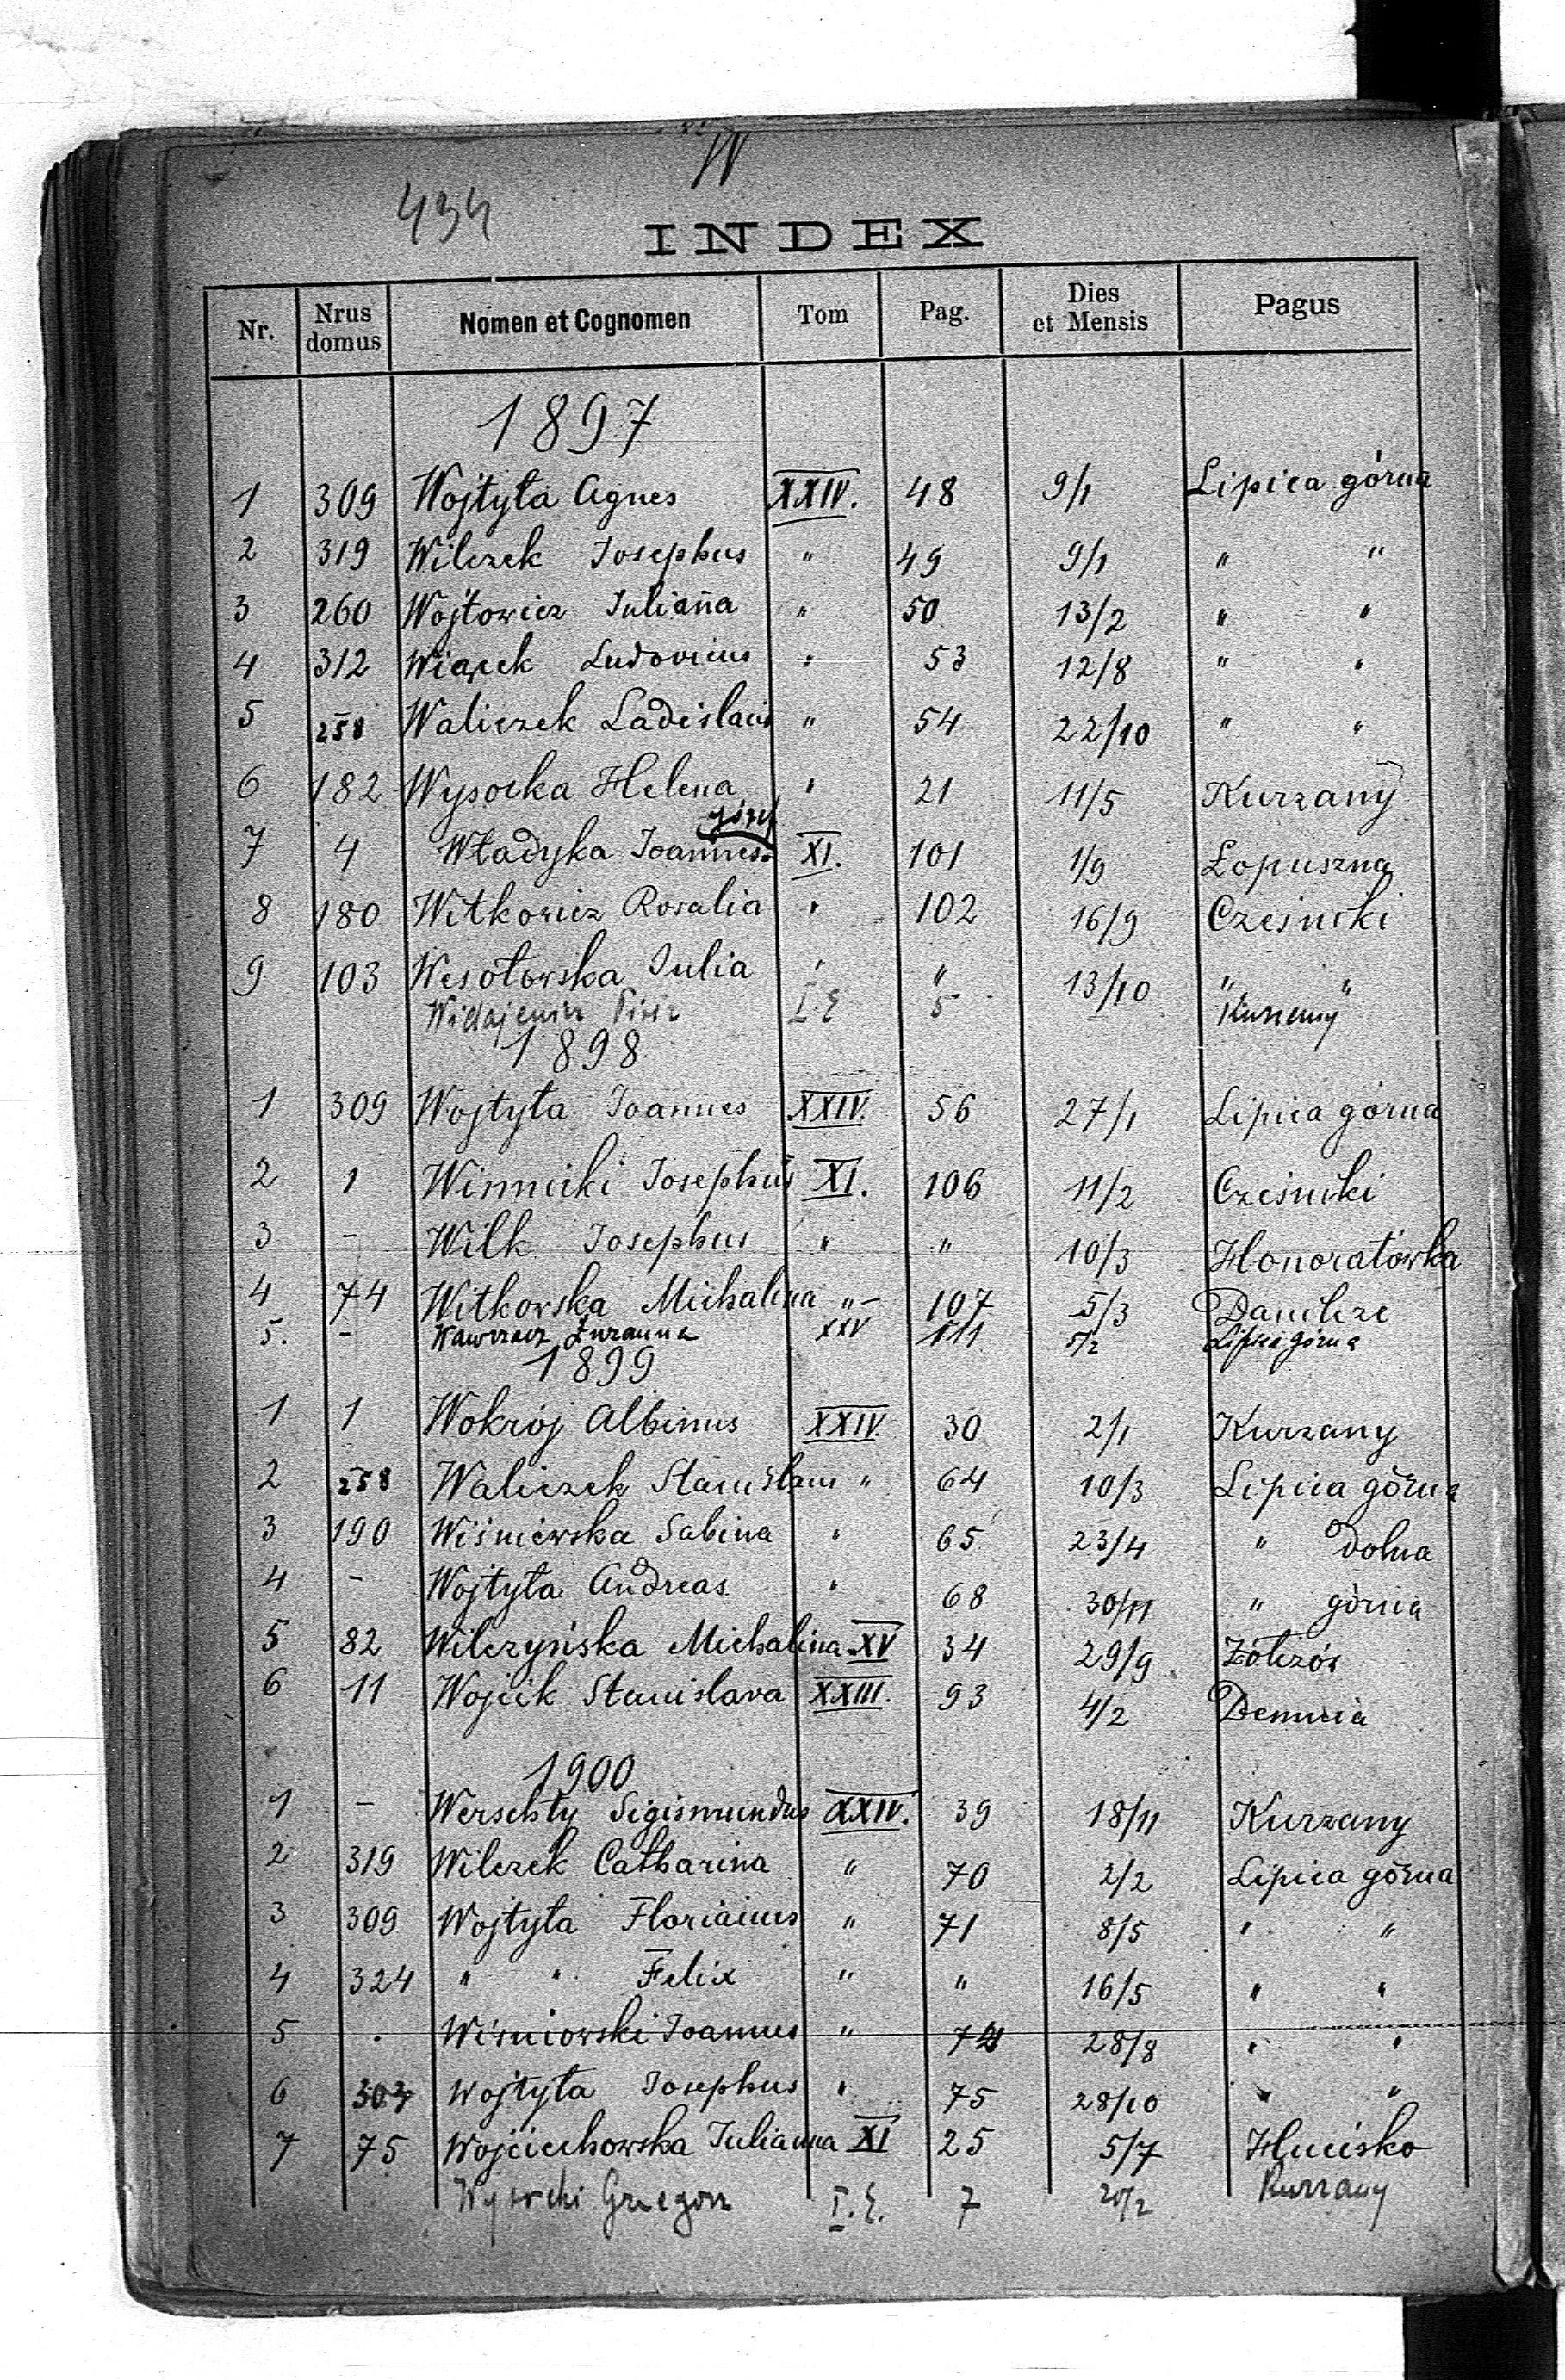 W
434
INDEX
Nr. Nrus domus Nomen et Cognomen Tom Pag. Dies et Mensis Pagus
1897
1 309 Wojtyła Agnes XXIV. 48 9/1 Lipica górna
2 319 Wilczek Josephus " 49 9/1 " "
3 260 Wojtowicz Juliana " 50 13/2 " "
4 312 Wiącek Ludovicus " 53 12/8 " "
5 258 Waliczek Ladislaus " 54 22/10 " "
6 182 Wysocka Helena " 21 11/5 Kurzany
Józef
7 4 Władyka Joannes XI. 101 1/9 Łopuszna
8 180 Witkowicz Rosalia " 102 16/9 Cześniki
9 103 Wesołowska Julia " " 13/10 " "
Piotr I.E 5 Kurzany
1898
1 309 Wojtyła Joannes XXIV. 56 27/1 Lipica górna
2 1 Winnicki Josephus XI. 106 11/2 Cześniki
3 - Wilk Josephus " " 10/3 Honoratówka
4 74 Witkowska Michalina " 107 5/3 Danilcze
5. - Zuzanna XXV 111 5/2 Lipica górna
1899
1 1 Wokrój Albinus XXIV. 30 2/1 Kurzany
2 258 Waliczek Stanislaus " 64 10/3 Lipica górna
3 190 Wiśniewska Sabina " 65 23/4 " dolna
4 - Wojtyła Andreas " 68 30/11 " górna
5 82 Wilczyńska Michalina XV 34 29/9 Żółczów
6 11 Wojcik Stanislava XXIII. 93 4/2 Demnia
1900
1 - Werschty Sigismundus XXIV. 39 18/11 Kurzany
2 319 Wilczek Catharina " 70 2/2 Lipica górna
3 309 Wojtyła Florianus " 71 8/5 " "
4 324 " " Felix " " 16/5 " "
5 . Wiśniowski Joannes " 74 28/8 " "
6 303 Wojtyła Josephus " 75 28/10 " "
7 75 Wojciechowska Julianna XI 25 5/7 Hucisko
Wysocki Grzegorz I.E. 7 20/2 Kurzany